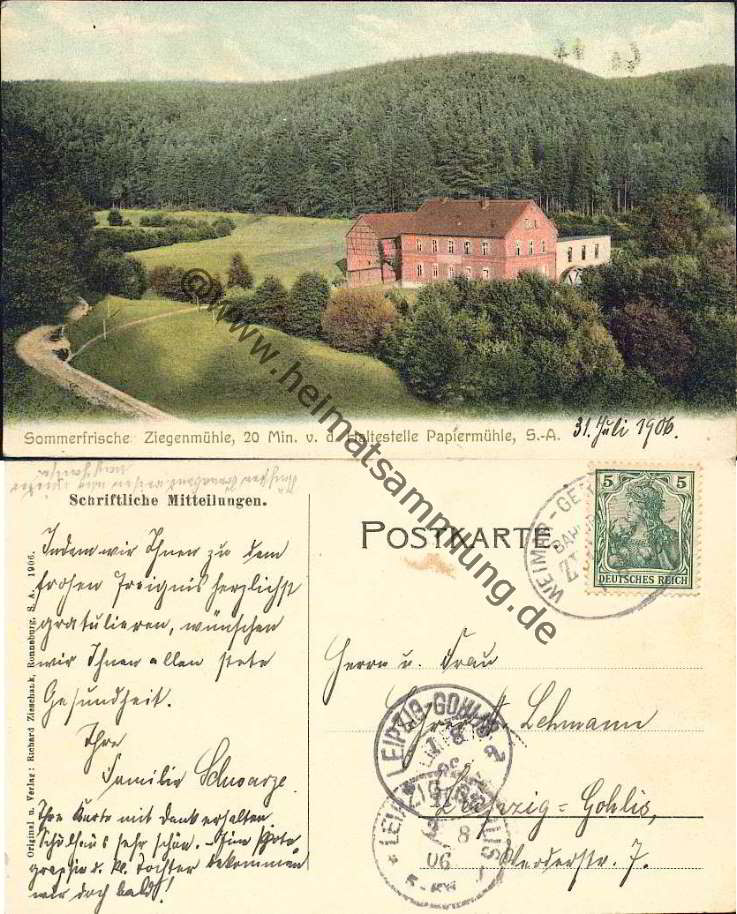 Sommerfrische Ziegenmühle, 20 Min. v. d. Haltestelle Papiermühle, S.-A.
31. Juli 1906.
© www.heimatsammlung.de
Schriftliche Mitteilungen.
POSTKARTE
WEIMAR-GE
BAH
5 5
DEUTSCHES REICH
Indem wir Ihnen zu dem
frohen Ereignis herzlichst
gratulieren, wünschen
wir Ihnen allen stete
Gesundheit.
Ihre
Familie Schwarze.
Ihre Karte mit Dank erhalten.
sehr schön. Eine Photo-
graphie d. Tochter bekommen
wir doch bald!
Original u. Verlag: Richard Zieschank, Ronneburg, S. A. 1906.
Herrn u. Frau
Lehmann
Leipzig-Gohlis,
Werderstr. 7.
LEIPZIG-GOHLIS
8
06